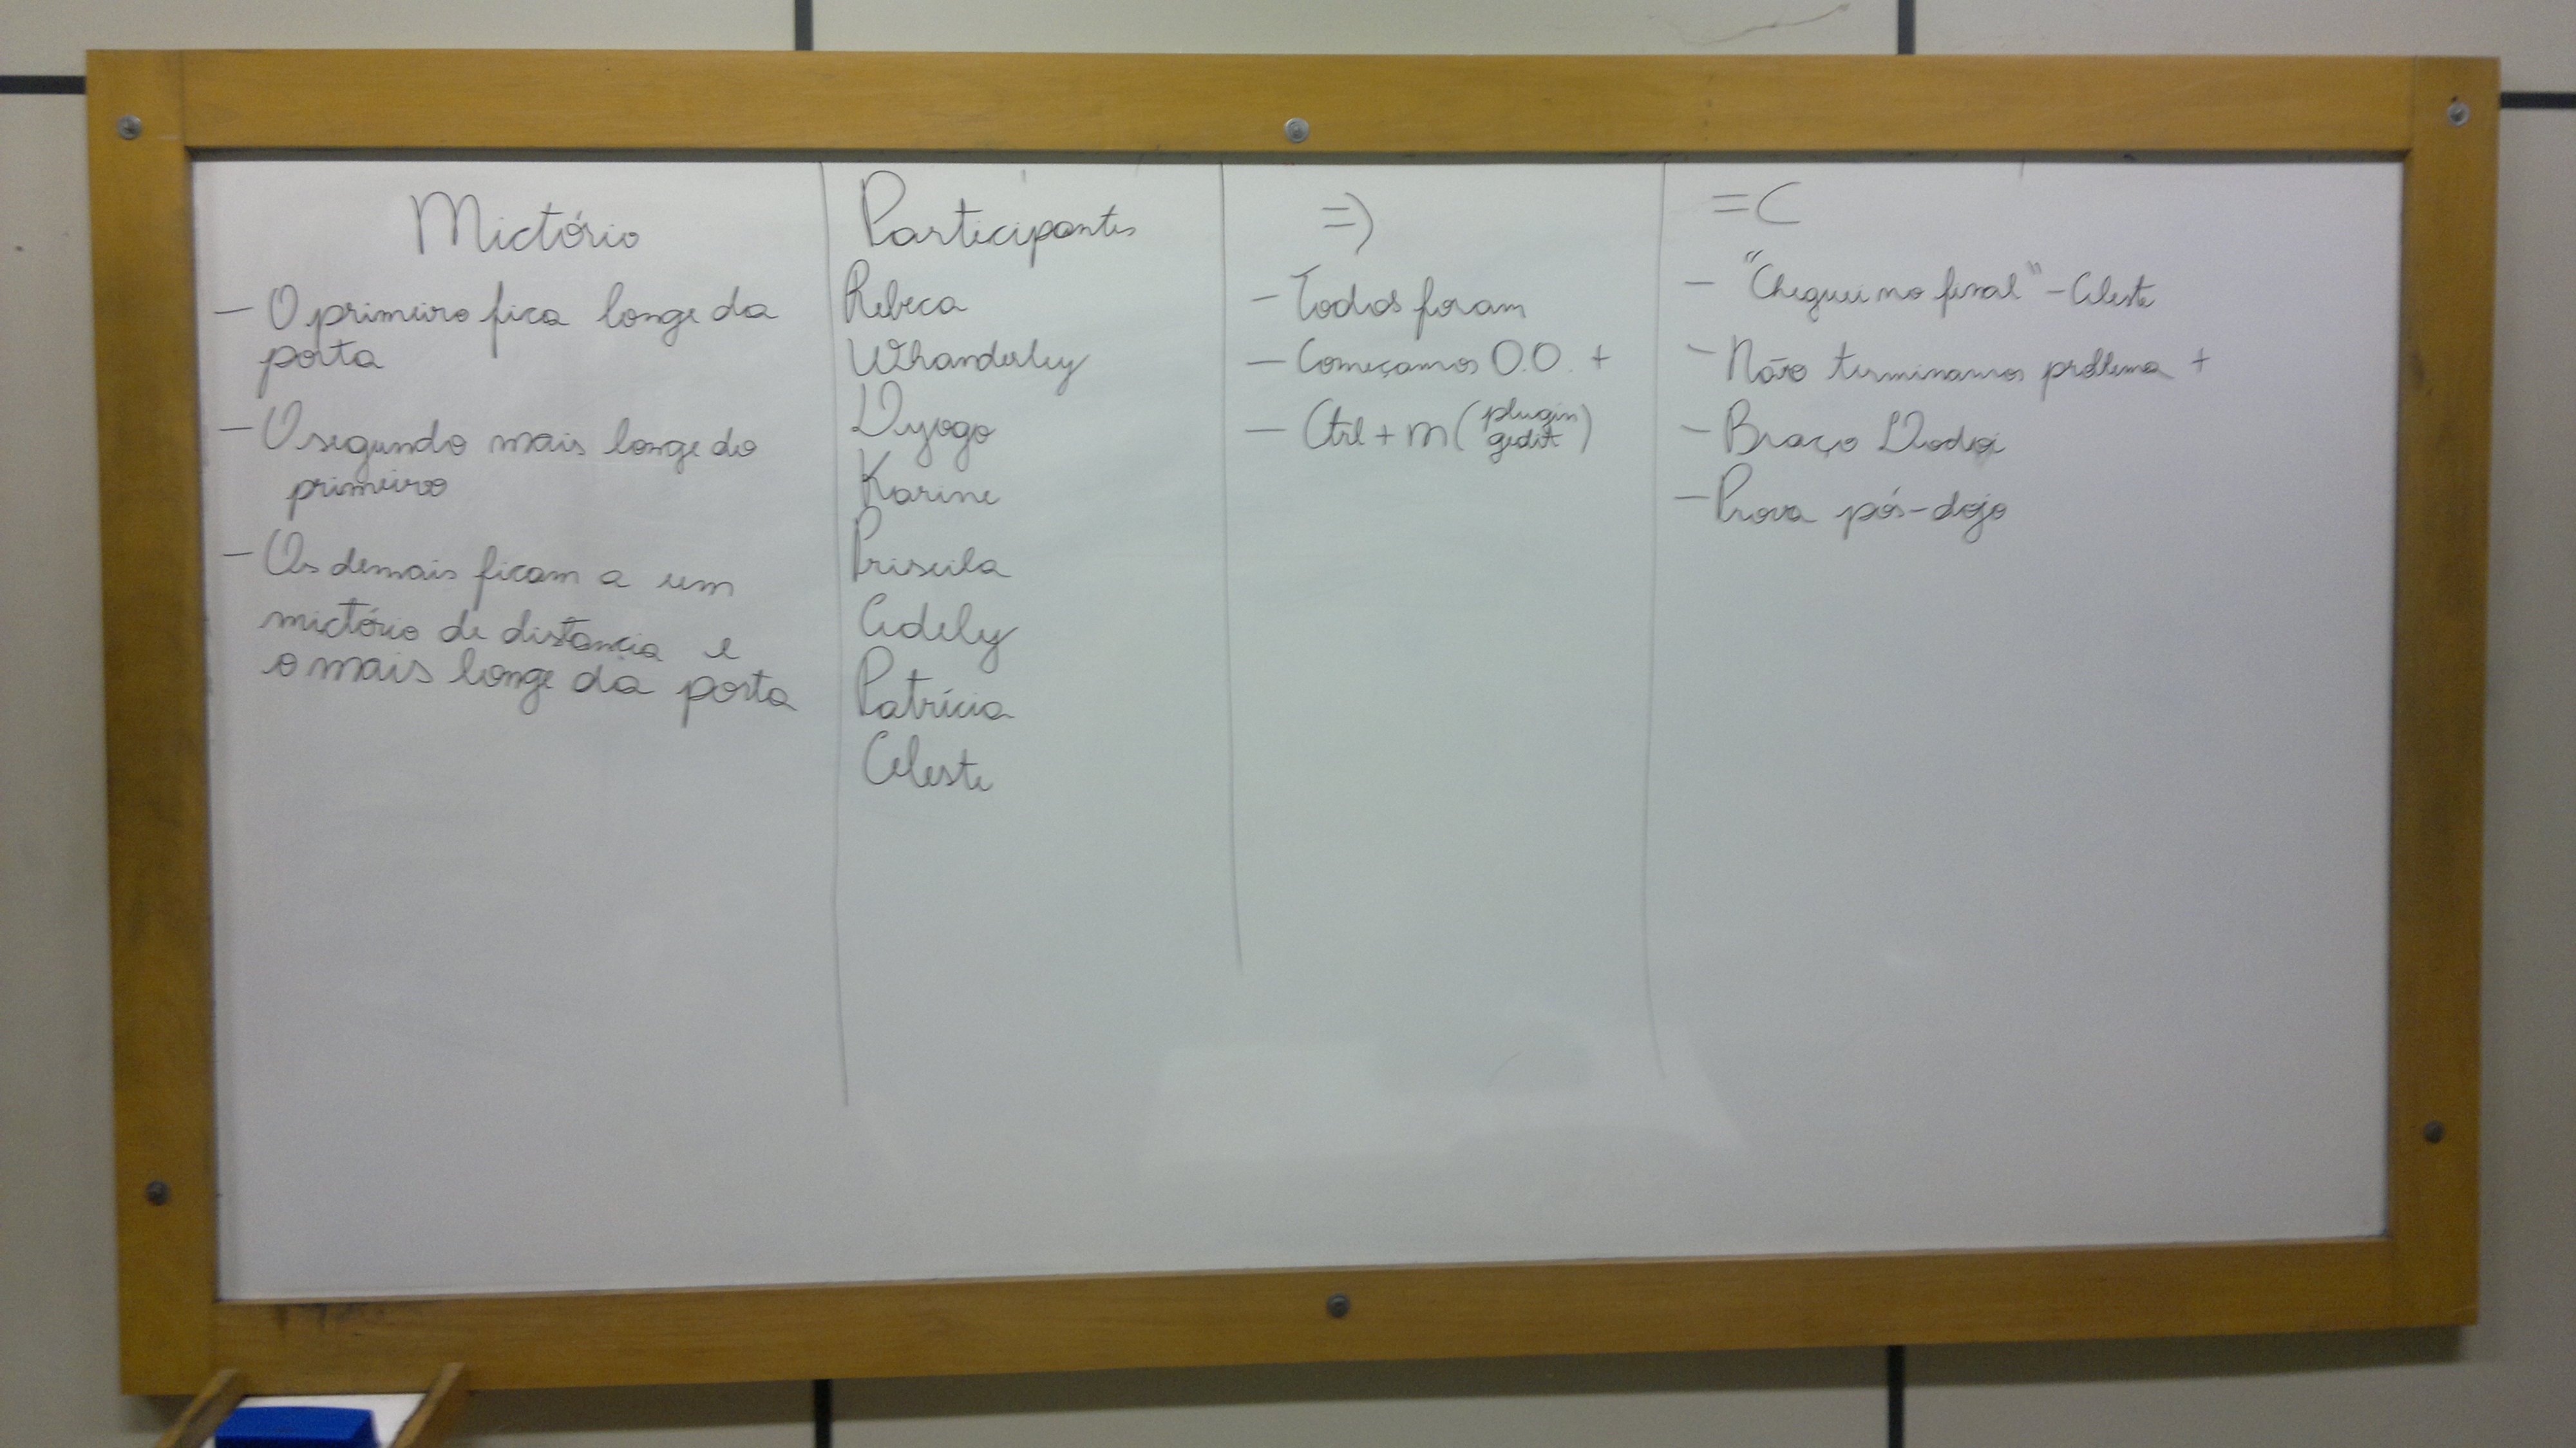 Mictório
- O primeiro fica longe da
porta
- O segundo mais longe do
primeiro
- Os demais ficam a um
mictório de distancia e
o mais longe da porta
Participantes
Rebeca
Whanderley
Dyogo
Karine
Priscila
Cidely
Patrícia
Celeste
=)
- Todos foram
- Começamos O.O. +
- Ctrl + m (plugin
gedit)
=C
- "Cheguei no final" - Celeste
- Não terminamos problema +
- Braço Dodói
- Prova pós-dojo